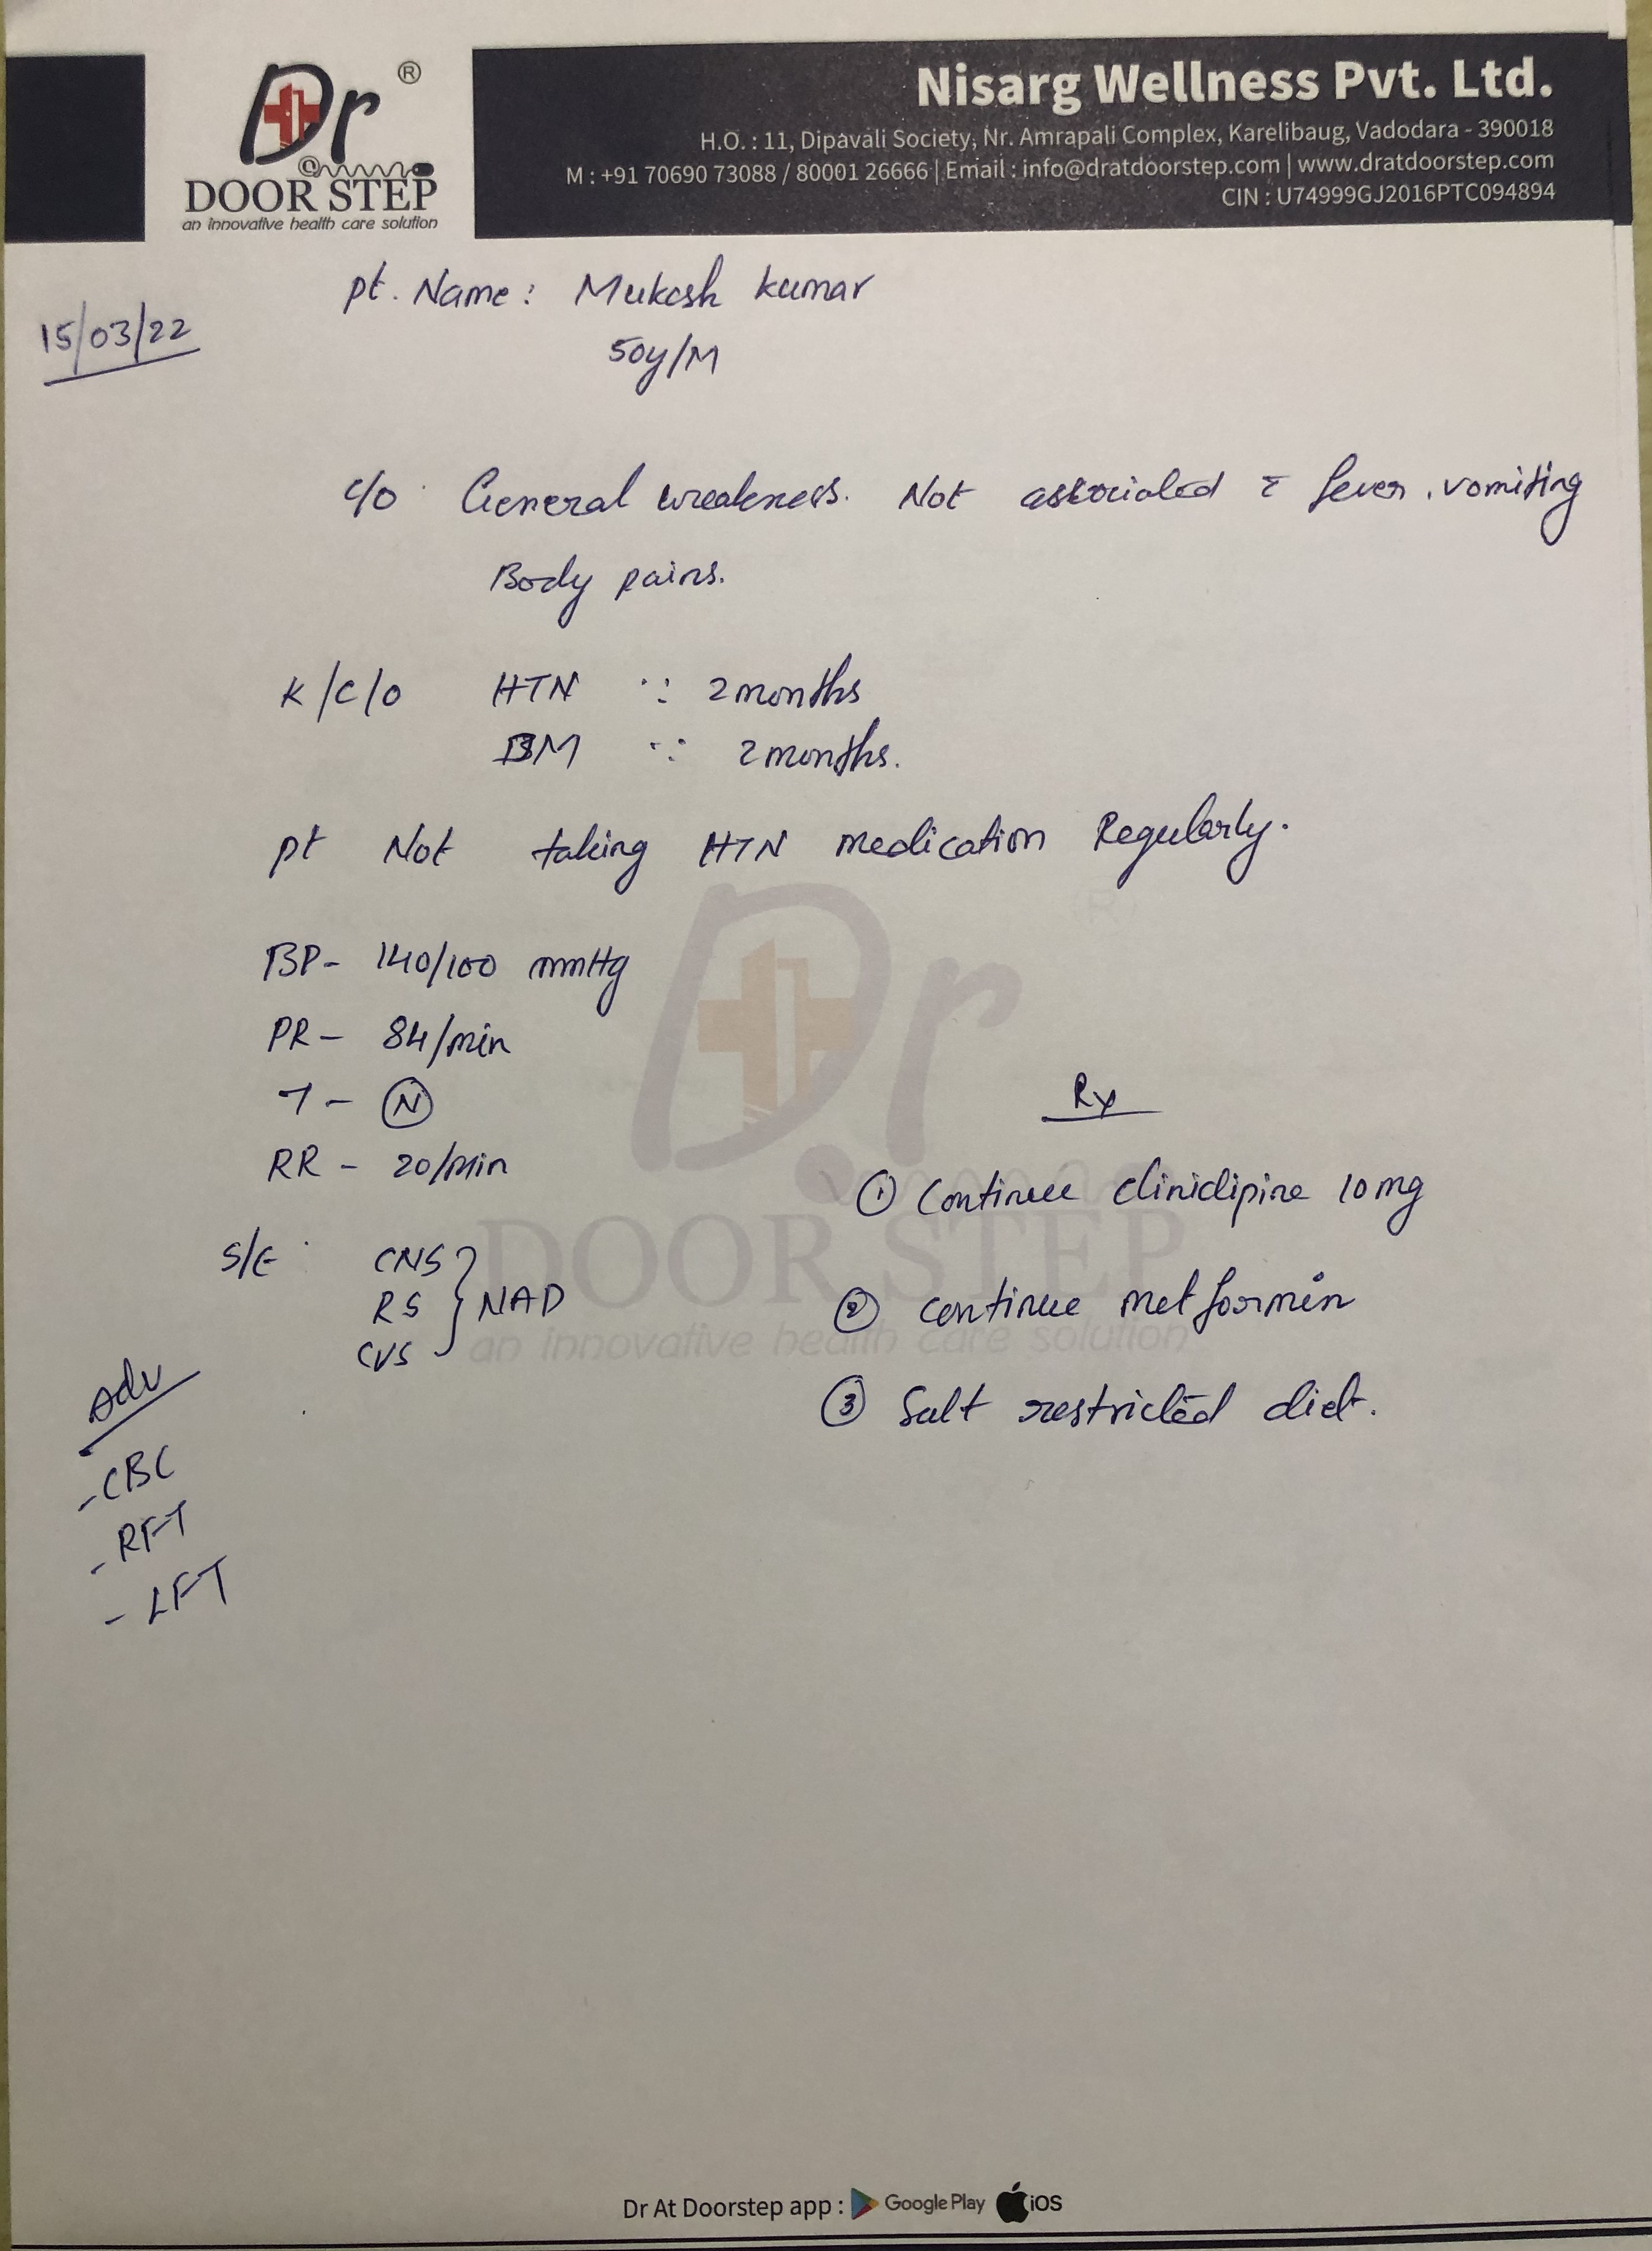 Dr ®
DOOR STEP
an innovative health care solution
Nisarg Wellness Pvt. Ltd.
H.O. : 11, Dipavali Society, Nr. Amrapali Complex, Karelibaug, Vadodara - 390018
M : +91 70690 73088 / 80001 26666 | Email : info@dratdoorstep.com | www.dratdoorstep.com
CIN : U74999GJ2016PTC094894
pt. Name : Mukesh kumar
15/03/22
50y/M
c/o General weakness. Not associated c̄ fever, vomiting
Body pains.
K/c/o HTN ∵ 2 months
DM ∵ 2 months.
pt Not taking HTN medication Regularly.
BP - 140/100 mmHg
PR - 84/min
T - N
RR - 20/min
Rx
① Continue clinidipine 10 mg
S/E : CNS
RS } NAD
CVS
② continue metformin
③ Salt restricted diet.
Adv
- CBC
- RFT
- LFT
Dr
DOOR STEP
an innovative health care solution
Dr At Doorstep app : Google Play iOS